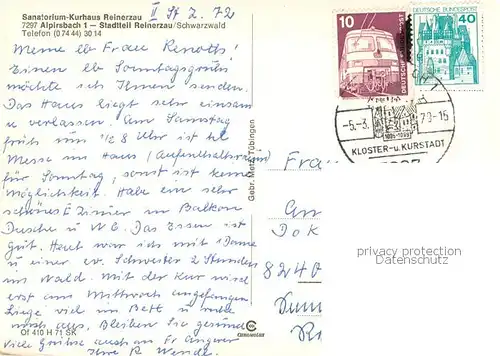 II St Z. 72
Sanatorium-Kurhaus Reinerzau
7297 Alpirsbach 1 — Stadtteil Reinerzau/Schwarzwald
Telefon (0 74 44) 30 14
Meine lb Frau Renoth!
Einen lb Sonntagsgruß
möchte ich Ihnen senden.
Das Haus liegt sehr einsam
u verlassen. Am Samstag
früh um 1/2 8 Uhr ist hl
Messe im Haus (Aufenthaltsraum)
für Sonntag, sonst ist keine
Möglichkeit. Habe ein sehr
schönes E Zimmer im Balkon
Dusche u W C. Das Essen ist
gut. Heut war ich mit 1 Dame
u einer ev. Schwester 2 Stunden
im Wald. Mit der Kur wird
erst am Mittwoch angefangen
Liege viel im Bett u ruhe
mich aus, Bleiben Sie gesund
viele Grüße auch an Fr
Ihre R.
Of 410 H 71 SK
Gebr. Metz Tübingen
10
DEUTSCHE BUNDESPOST
DEUTSCHE BUNDESPOST
40
-5.-3.
79-15
KLOSTER-u.KURSTADT
7297
Frau
An
Dok
8240
privacy protection
Datenschutz